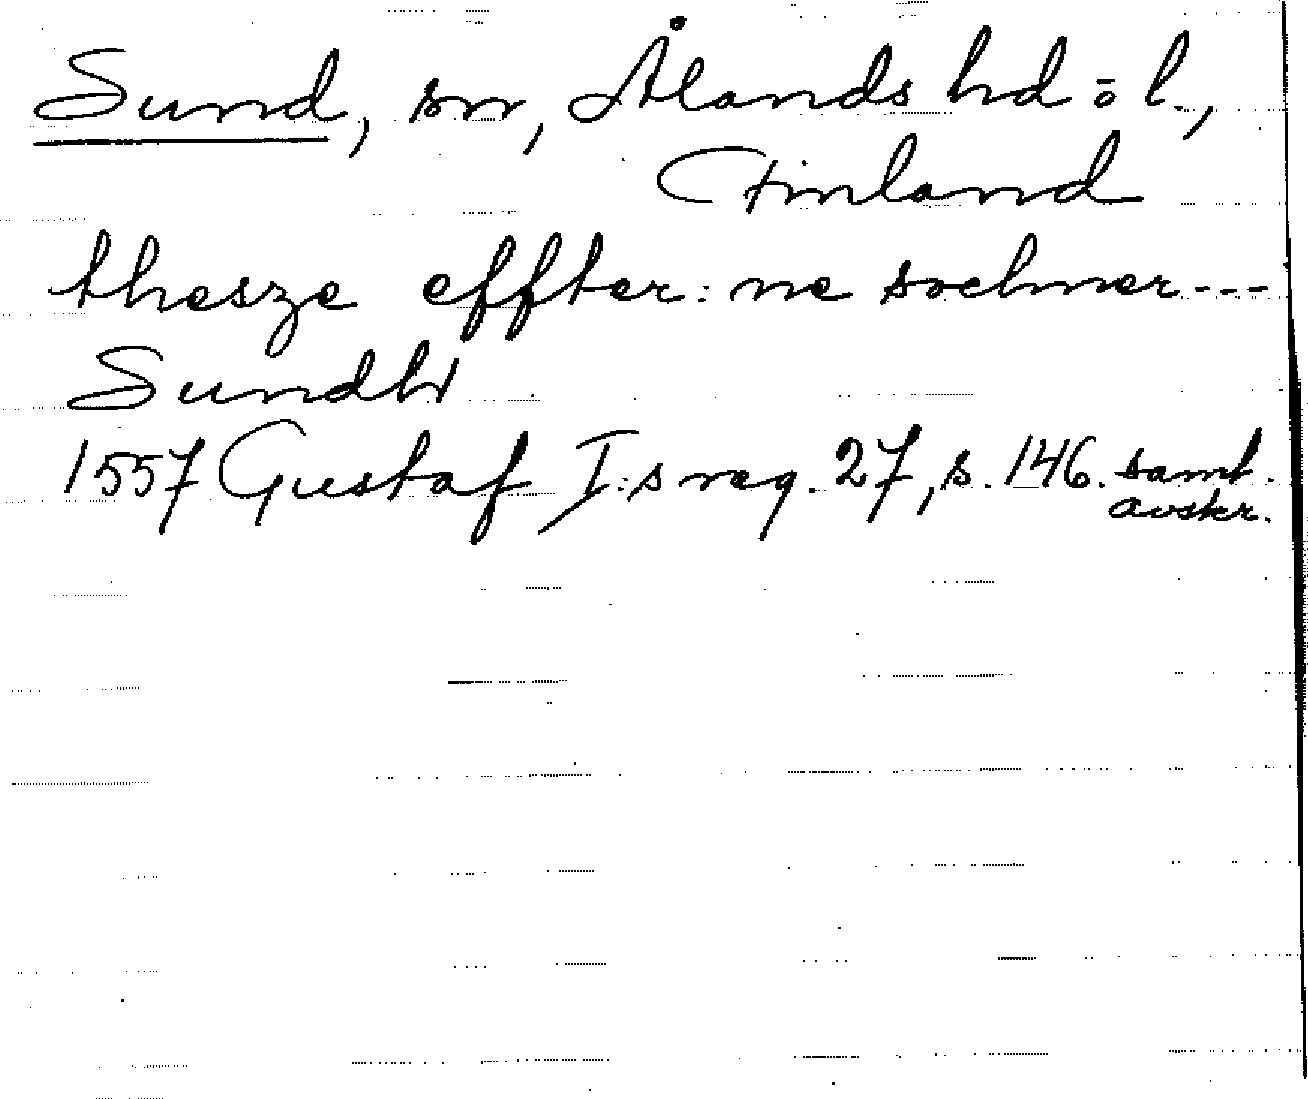 Sund, sn, Ålands hd ö l.,
Finland
thesze effter: ne sochner---
Sundh
1557 Gustaf I:s reg. 27, s. 146. samt.
avskr.